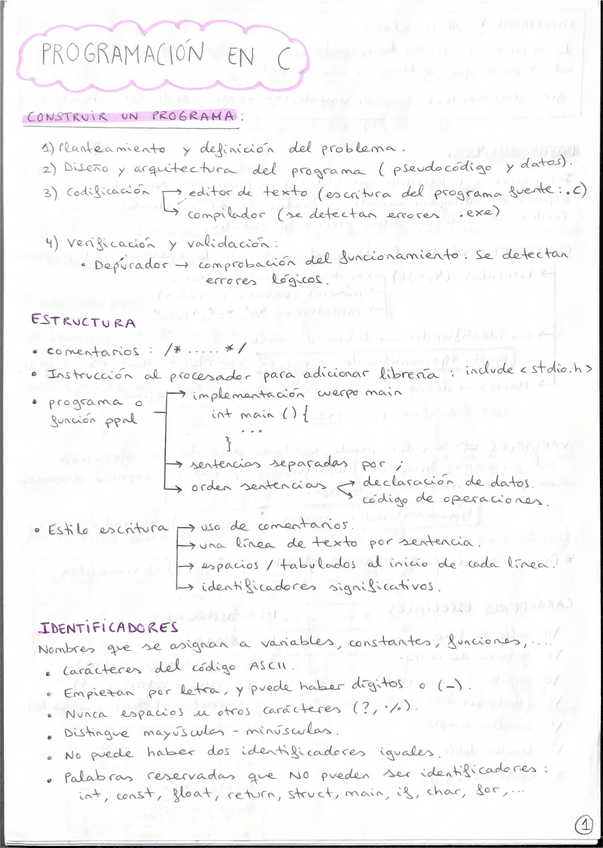 PROGRAMACIÓN EN C
CONSTRUIR UN PROGRAMA:
1) Planteamiento y definición del problema.
2) Diseño y arquitectura del programa (pseudocódigo y datos).
3) Codificación → editor de texto (escritura del programa fuente: .c)
→ compilador (se detectan errores .exe)
4) Verificación y validación:
• Depurador → comprobación del funcionamiento. Se detectan
errores lógicos.
ESTRUCTURA
• comentarios: /* ..... */
• Instrucción al procesador para adicionar librería: include <stdio.h>
• programa o función ppal → implementación cuerpo main
int main () {
...
}
→ sentencias separadas por ;
→ orden sentencias → declaración de datos.
→ código de operaciones.
• Estilo escritura → uso de comentarios.
→ una línea de texto por sentencia.
→ espacios / tabulados al inicio de cada línea.
→ identificadores significativos.
IDENTIFICADORES
Nombres que se asignan a variables, constantes, funciones, ....
• Carácteres del código ASCII.
• Empietan por letra, y puede haber dígitos o (-).
• Nunca espacios u otros carácteres (?, %).
• Distingue mayúsculas - minúsculas.
• No puede haber dos identificadores iguales.
• Palabras reservadas que NO pueden ser identificadores:
int, const, float, return, struct, main, if, char, for, ...
1